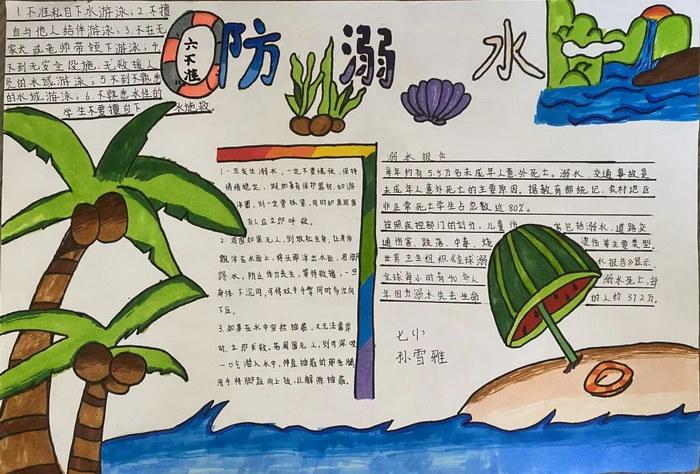 1.不准私自下水游泳;2.不擅
自与他人结伴游泳;3.不在无
家长或老师带领下游泳;4.
不到无安全设施、无救援人
员的水域游泳;5.不到不熟悉
的水域游泳;6.不熟悉水性的
学生不要擅自下水施救。
六不准
防溺水
1.一旦发生溺水,一定不要慌张,保持
情绪稳定,
有人应立即呼救。
2.周围如果无人,则放松全身,让身体
飘浮在水面上,将头部浮出水面,用脚
踢水,防止体力丧失,等待救援,一旦
身体下沉时,可将双手手掌同时向
下压。
3.如果在水中突然抽筋,又无法靠岸
时,立即求救。若周围无人,则可深吸
一口气潜入水中,伸直抽筋的那条腿
用手将脚趾向上扳,以解除抽筋。
溺水报告
每年约有5.5万名未成年人意外死亡。溺水、交通事故是
未成年人意外死亡的主要原因。据教育部统记,农村地区
非正常死亡学生占总数达80%。
按照疾控部门的划分,儿童伤害包括溺水、道路交
通伤害、跌落、中毒、烧烫伤等主要类型,
世界卫生组织《全球溺水报告》显示,
全球每小时有40多人溺水死亡,每
年因为溺水失去生命的人约37.2万。
七小
孙雪雅